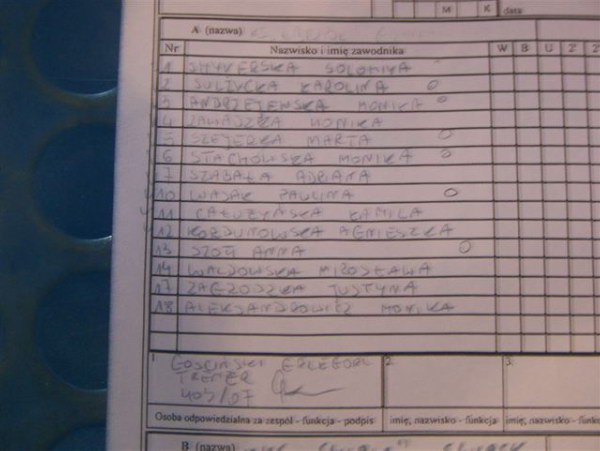 M K data
A (nazwa)
Nr Nazwisko i imię zawodnika W B U 2' 2'
1 SHYVERSKA SOLOMIYA
2 SULZYCKA KAROLINA O
3 ANDRZEJEWSKA MONIKA O
4 ZAWADZKA MONIKA
5 SZEJERKA MARTA O
6 STACHOWSKA MONIKA O
7 SZABAŁA ADRIANA
10 WASAK PAULINA O
11 CAŁUŻYŃSKA KAMILA
12 KORDUNOWSKA AGNIESZKA
13 SZOT ANNA O
14 WALDOWSKA MIROSŁAWA
17 ZAGRODZKA JUSTYNA
18 ALEKSANDROWICZ MONIKA
1. 2. 3.
GOŚCIŃSKI GRZEGORZ
TRENER
403/07
Osoba odpowiedzialna za zespół - funkcja - podpis imię, nazwisko - funkcja imię, nazwisko - funkcja
B (nazwa)